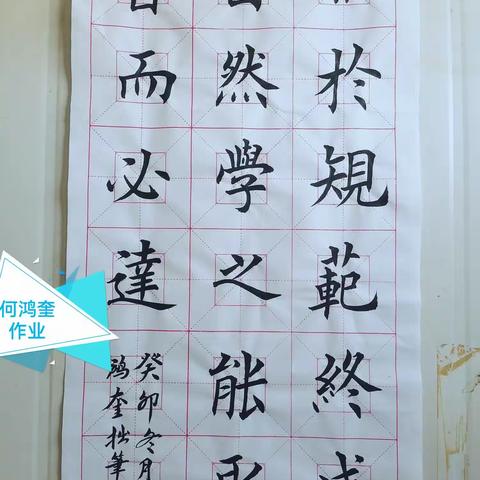 於規範終
然學之能
而必達
癸卯冬月
鴻奎拙筆
何鸿奎
作业